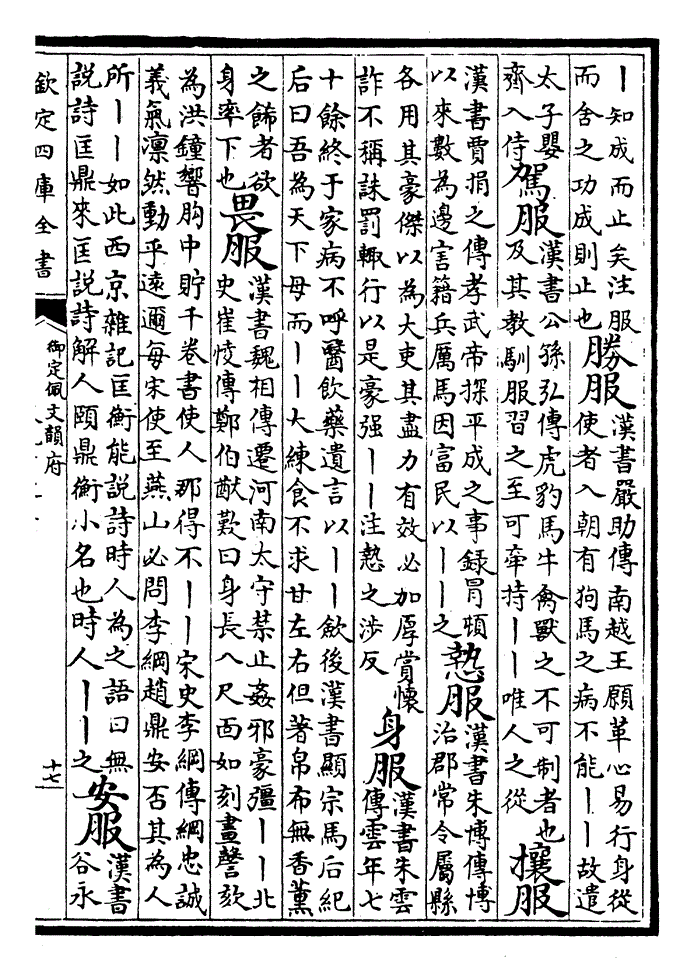 丨知成而止矣注服
而舍之功成則止也
勝服
漢書嚴助傳南越王願革心易行身從
使者入朝有狗馬之病不能丨丨故遣
太子嬰
齊入侍
駕服
漢書公孫弘傳虎豹馬牛禽獸之不可制者也
及其教馴服習之至可牽持丨丨唯人之從
攘服
漢書賈捐之傳孝武帝探平成之事録冒頓
以來數為邊害籍兵厲馬因富民以丨丨之
慹服
漢書朱博傳博
治郡常令屬縣
各用其豪傑以為大吏其盡力有效必加厚賞懷
詐不稱誅罰輒行以是豪强丨丨注慹之涉反
身服
漢書朱雲
傳雲年七
十餘終于家病不呼醫飲藥遺言以丨丨歛後漢書顯宗馬后紀
后曰吾為天下母而丨丨大練食不求甘左右但著帛布無香薰
之飾者欲
身率下也
畏服
漢書魏相傳遷河南太守禁止姦邪豪彊丨丨北
史崔㥄傳鄭伯猷歎曰身長八尺面如刻畫謦欬
為洪鐘響胸中貯千卷書使人那得不丨丨宋史李綱傳綱忠誠
義氣凛然動乎遠邇每宋使至燕山必問李綱趙鼎安否其為人
所丨丨如此西京雜記匡衡能說詩時人為之語曰無
說詩匡鼎來匡說詩解人頤鼎衡小名也時人丨丨之
安服
漢書
谷永
欽定四庫全書
御定佩文韻府
十七